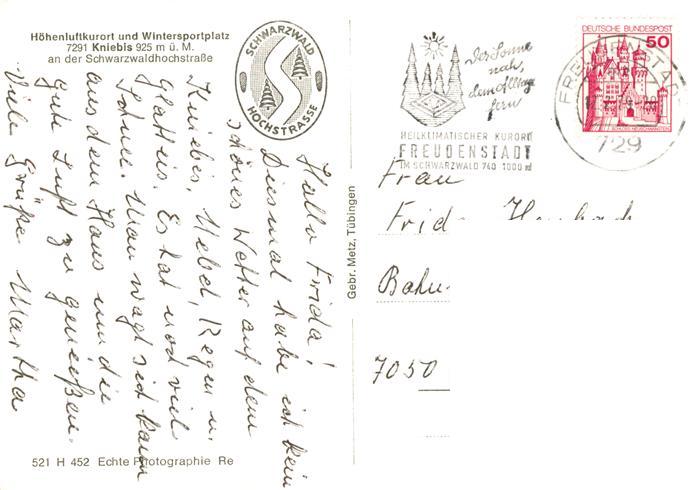 Höhenluftkurort und Wintersportplatz
7291 Kniebis 925 m ü. M.
an der Schwarzwaldhochstraße
SCHWARZWALD
HOCHSTRASSE
Hallo Frida!
Diesmal habe ich kein
schönes Wetter auf dem
Kniebis, Nebel, Regen u.
Glatteis. Es hat noch viel
Schnee. Man wagt sich kaum
aus dem Haus um die
gute Luft zu genießen.
Viele Grüße Martha
521 H 452 Echte Photographie Re
Gebr. Metz, Tübingen
Der Sonne
nah,
dem Alltag
fern
HEILKLIMATISCHER KURORT
FREUDENSTADT
IM SCHWARZWALD 740-1000 m
FREUDENSTADT
729
DEUTSCHE BUNDESPOST
50
SCHLOSS NEUSCHWANSTEIN
Frau
Frid
Bahn
7050